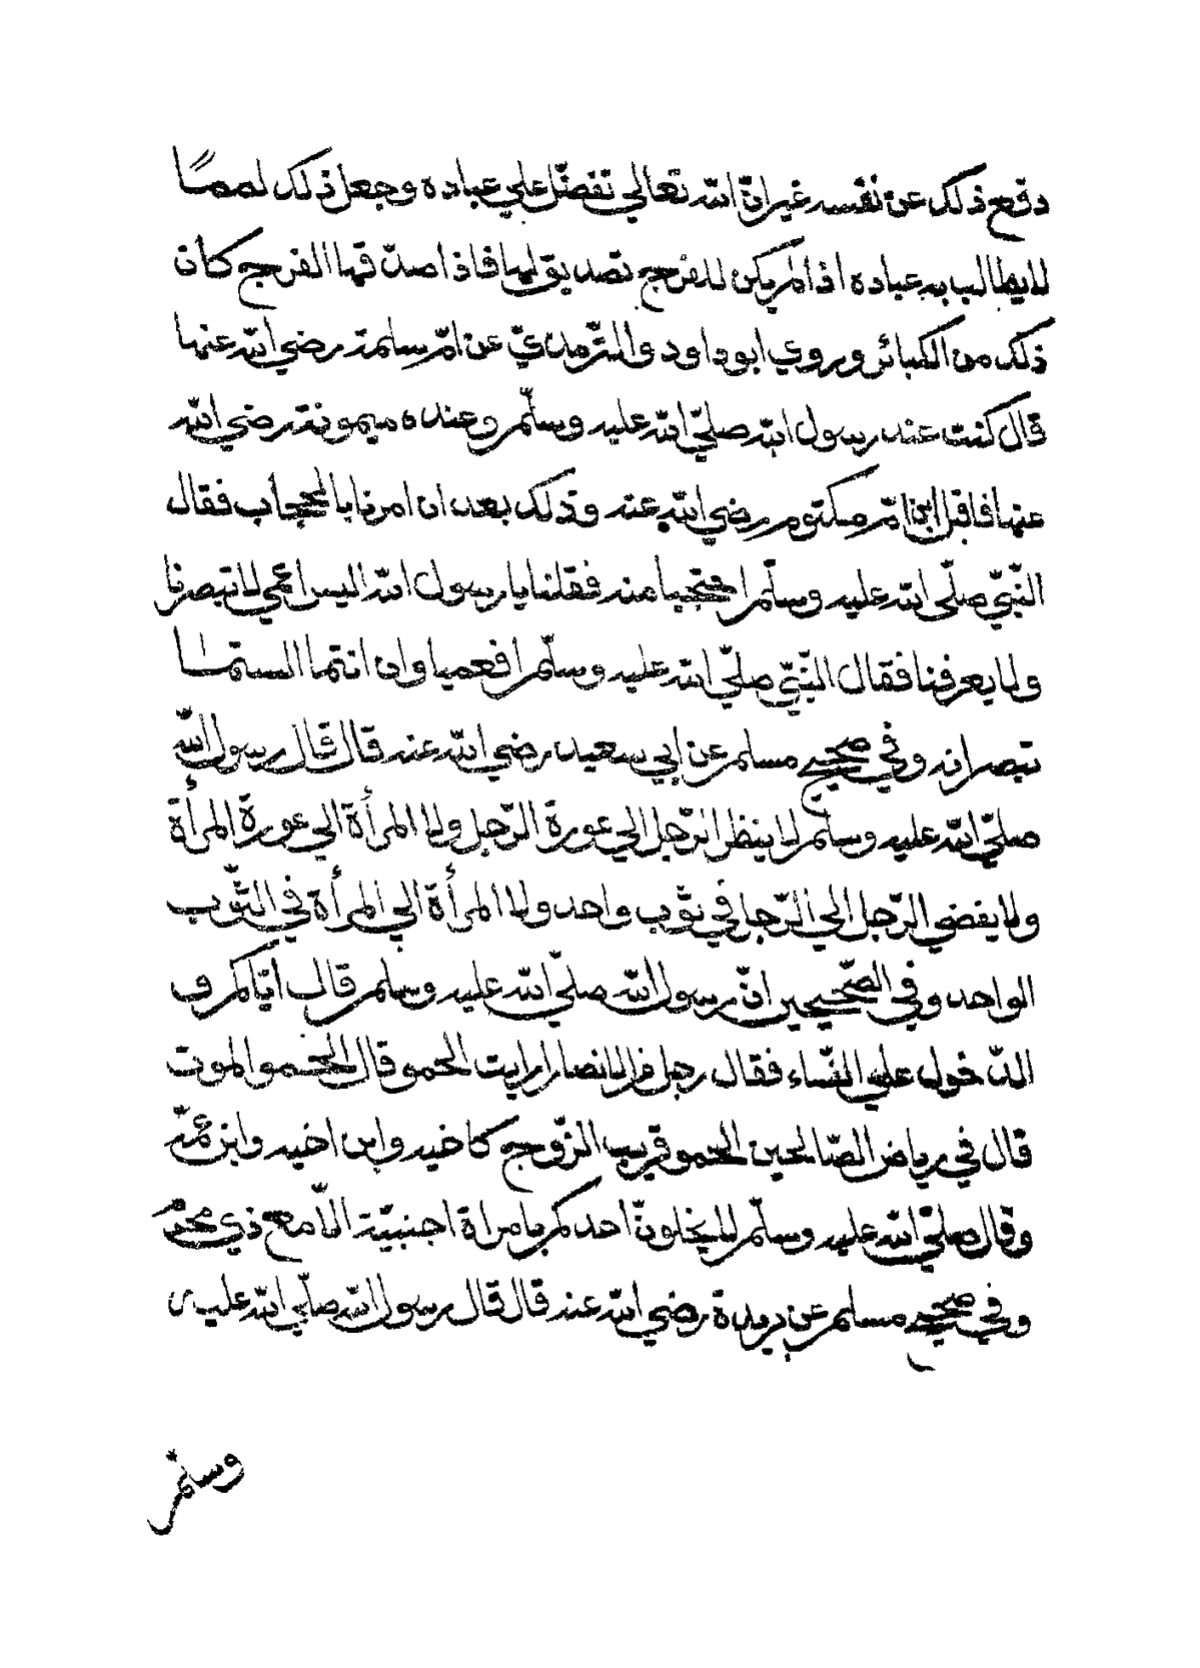 دفع ذلك عن نفسه غير انّ الله تعالى تفضّل علي عباده وجعل ذلك لممًا
لا يطالب به عباده اذا لم يكن للفرج تصديق لها فاذا صدّقها الفرج كان
ذلك من الكبائر وروي ابو داود والترمذيّ عن امّ سلمة رضي الله عنها
قال كنت عند رسول الله صلّي الله عليه وسلّم وعنده ميمونة رضي الله
عنها فاقبل ابن امّ مكتوم رضي الله عنه وذلك بعد ان امرنا بالحجاب فقال
النّبيّ صلّى الله عليه وسلّم احتجبا منه فقلنا يا رسول الله اليس اعمي لا تبصرنا
ولا يعرفنا فقال النّبيّ صلّي الله عليه وسلّم افعميا وان انتما الستما
تبصرانه وفي صحيح مسلم عن ابي سعيد رضي الله عنه قال قال رسول الله
صلّي الله عليه وسلّم لا ينظر الرّجل الي عورة الرّجل ولا المرأة الي عورة المرأة
ولا يفضي الرّجل الي الرّجل في ثوب واحد ولا المرأة الي المرأة في الثّوب
الواحد وفي الصّحيحين انّ رسول الله صلّي الله عليه وسلم قال ايّاكم و
الدّخول علي النّساء فقال رجل من الانصار ارايت الحمو قال الحمو الموت
قال في رياض الصّالحين الحمو قريب الزّوج كاخيه وابن اخيه وابن عمّه
وقال صلّي الله عليه وسلّم لا يخلونّ احدكم بامراة اجنبيّة الّا مع ذي محرم
وفي صحيح مسلم عن بريدة رضي الله عنه قال قال رسول الله صلّي الله عليه
وسلم